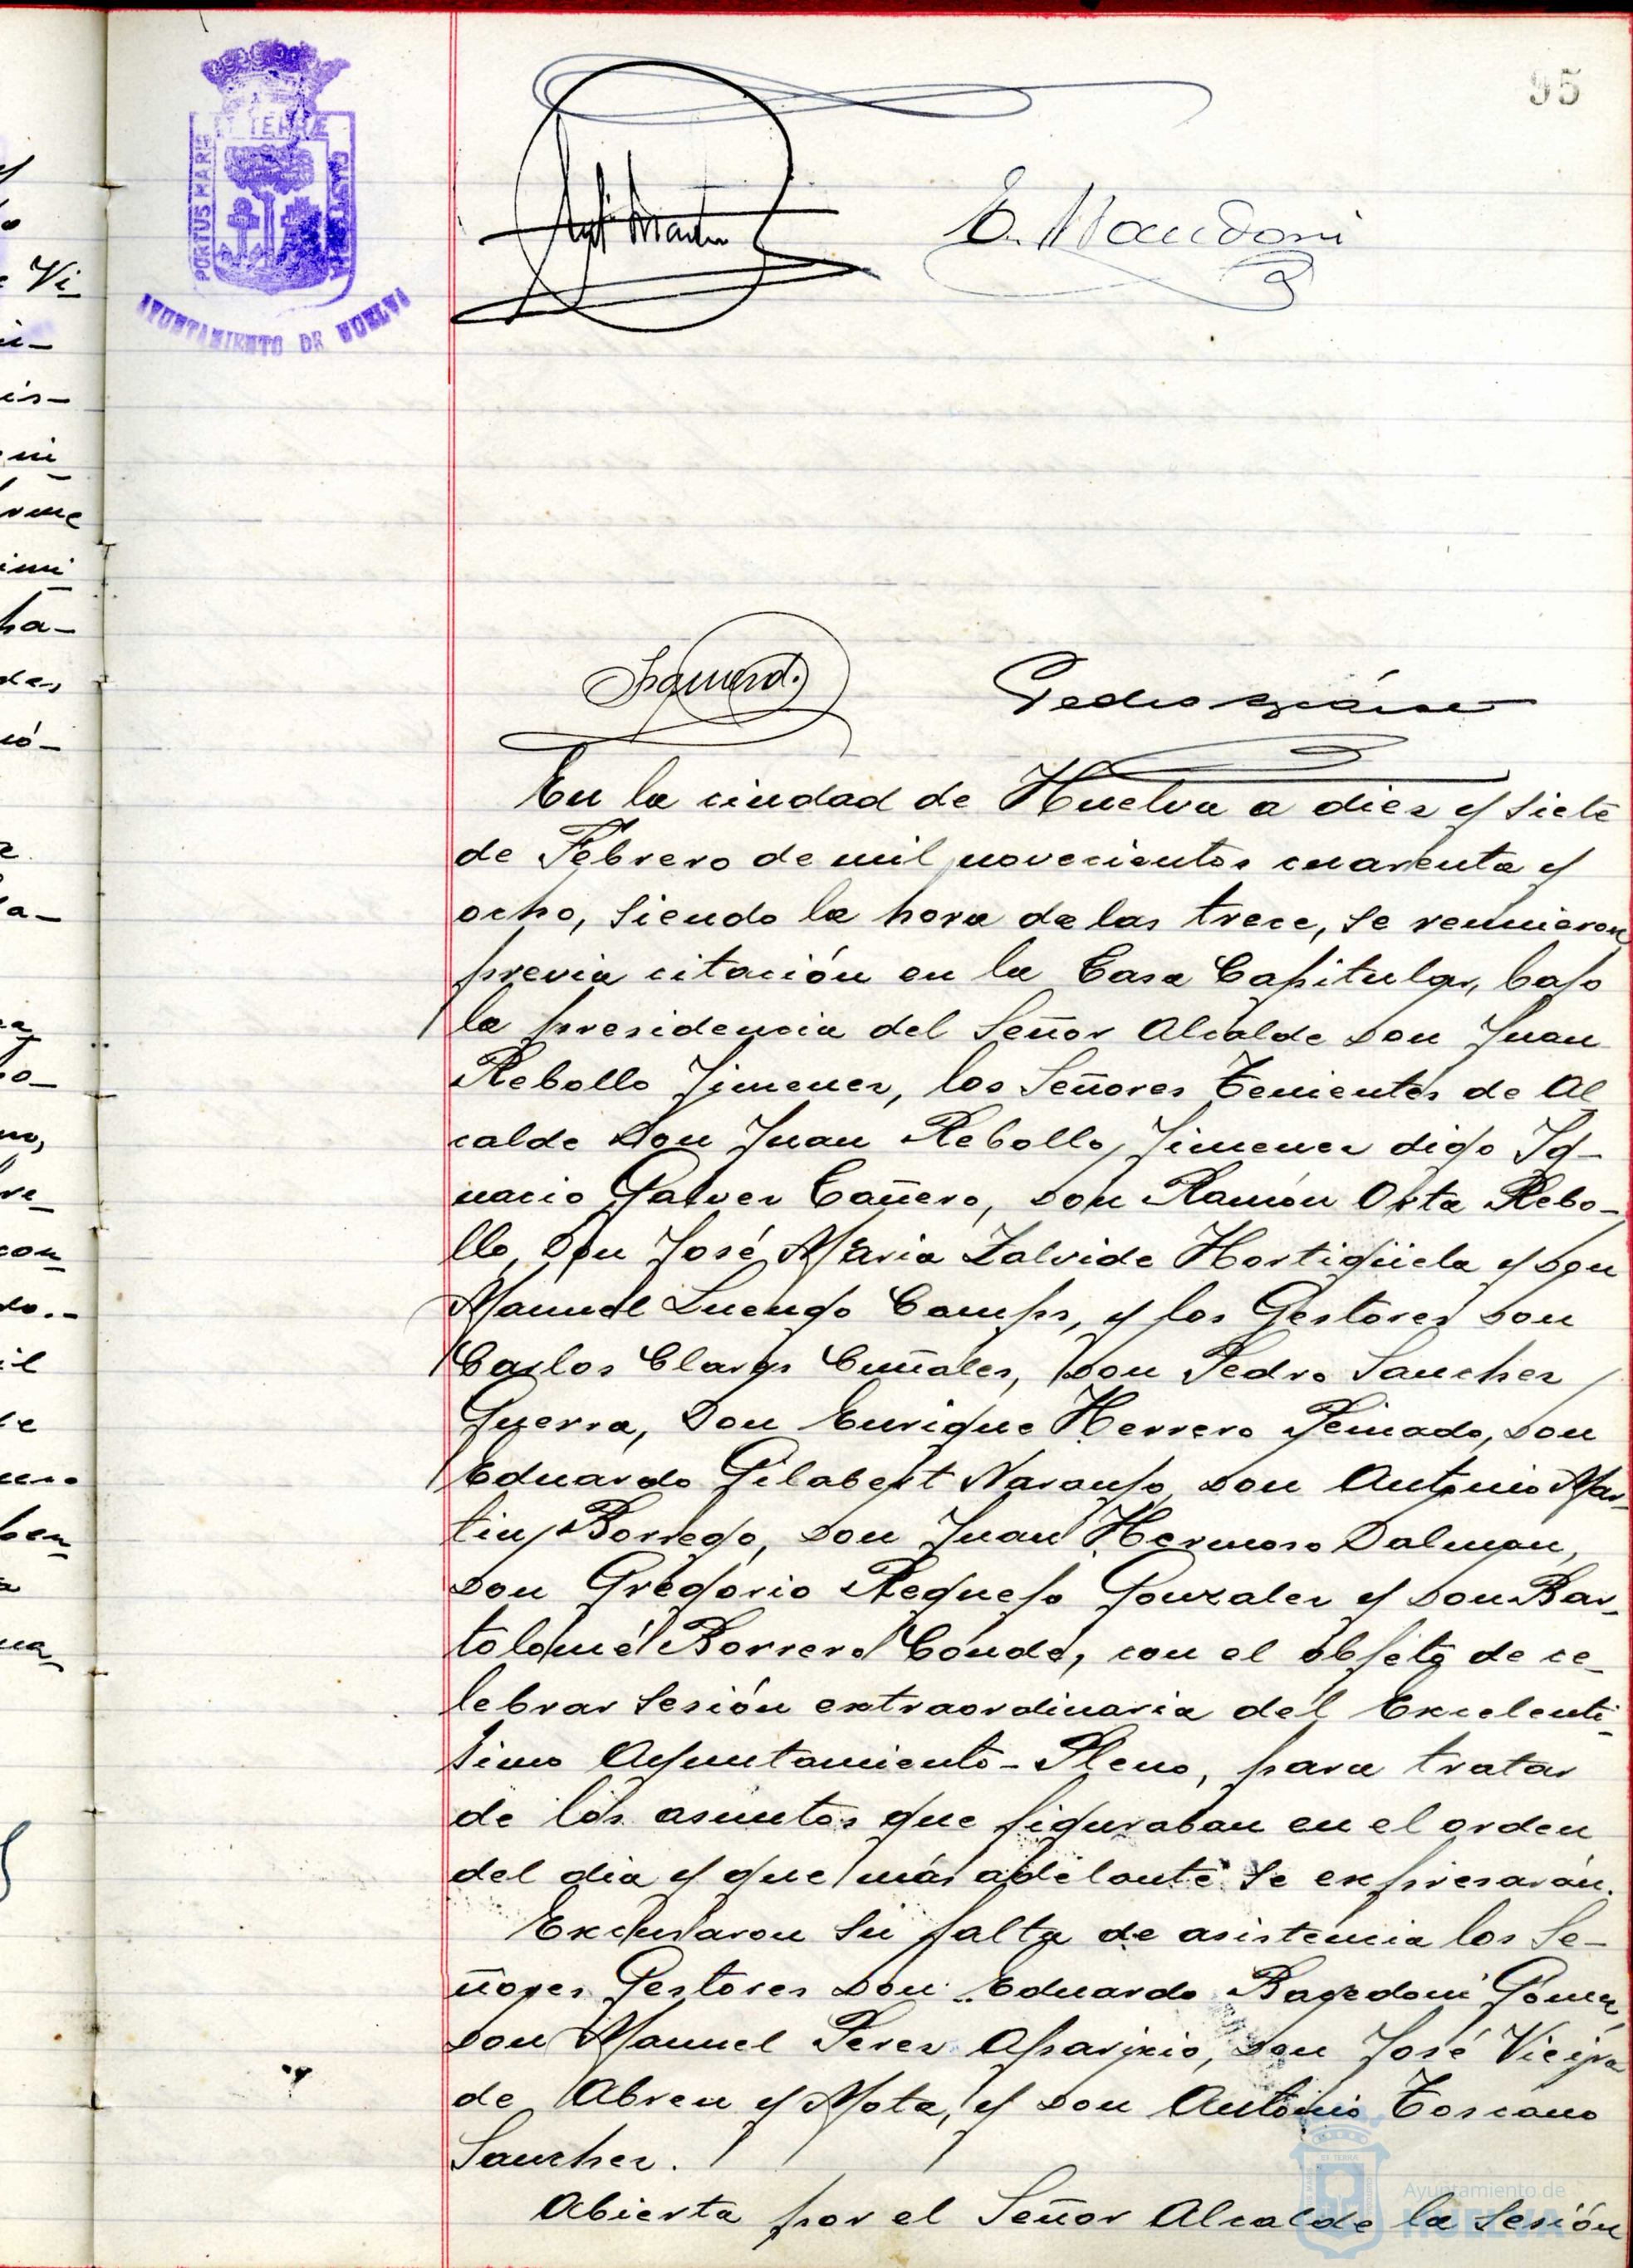 95
PORTUS MARIS
ET TERRÆ
AYUNTAMIENTO DE HUELVA
En la ciudad de Huelva a diez y siete
de Febrero de mil novecientos cuarenta y
ocho, siendo la hora de las trece, se reunieron
previa citación en la Casa Capitular, bajo
la presidencia del Señor Alcalde Don Juan
Rebollo Jimenez, los Señores Tenientes de Al
calde Don Juan Rebollo Jimenez digo Ig-
nacio Galvez Cañero, Don Ramón Orta Rebo-
llo, Don José Maria Zalvide Hortigüela y Don
Manuel Luengo Camps, y los Gestores Don
Carlos Clavijo Don Pedro Sanchez
Guerra, Don Enrique Herrero Peinado, Don
Eduardo Gilabert Naranjo, Don Antonio Mar-
tin Borrego, Don Juan Hermoso Dalmau,
Don Gregorio Requejo Gonzalez y Don Bar-
tolomé Borrero Conde, con el objeto de ce-
lebrar sesión extraordinaria del Excelenti-
simo Ayuntamiento-Pleno, para tratar
de los asuntos que figuraban en el orden
del dia y que más adelante se expresarán.
Excusaron su falta de asistencia los Se-
ñores Gestores Don Eduardo Gómez,
Don Manuel Perez Aparicio, Don José Vieyra
de Abreu y Mota, y Don Antonio Toscano
Sanchez.
Abierta por el Señor Alcalde la sesión
Ayuntamiento de
HUELVA